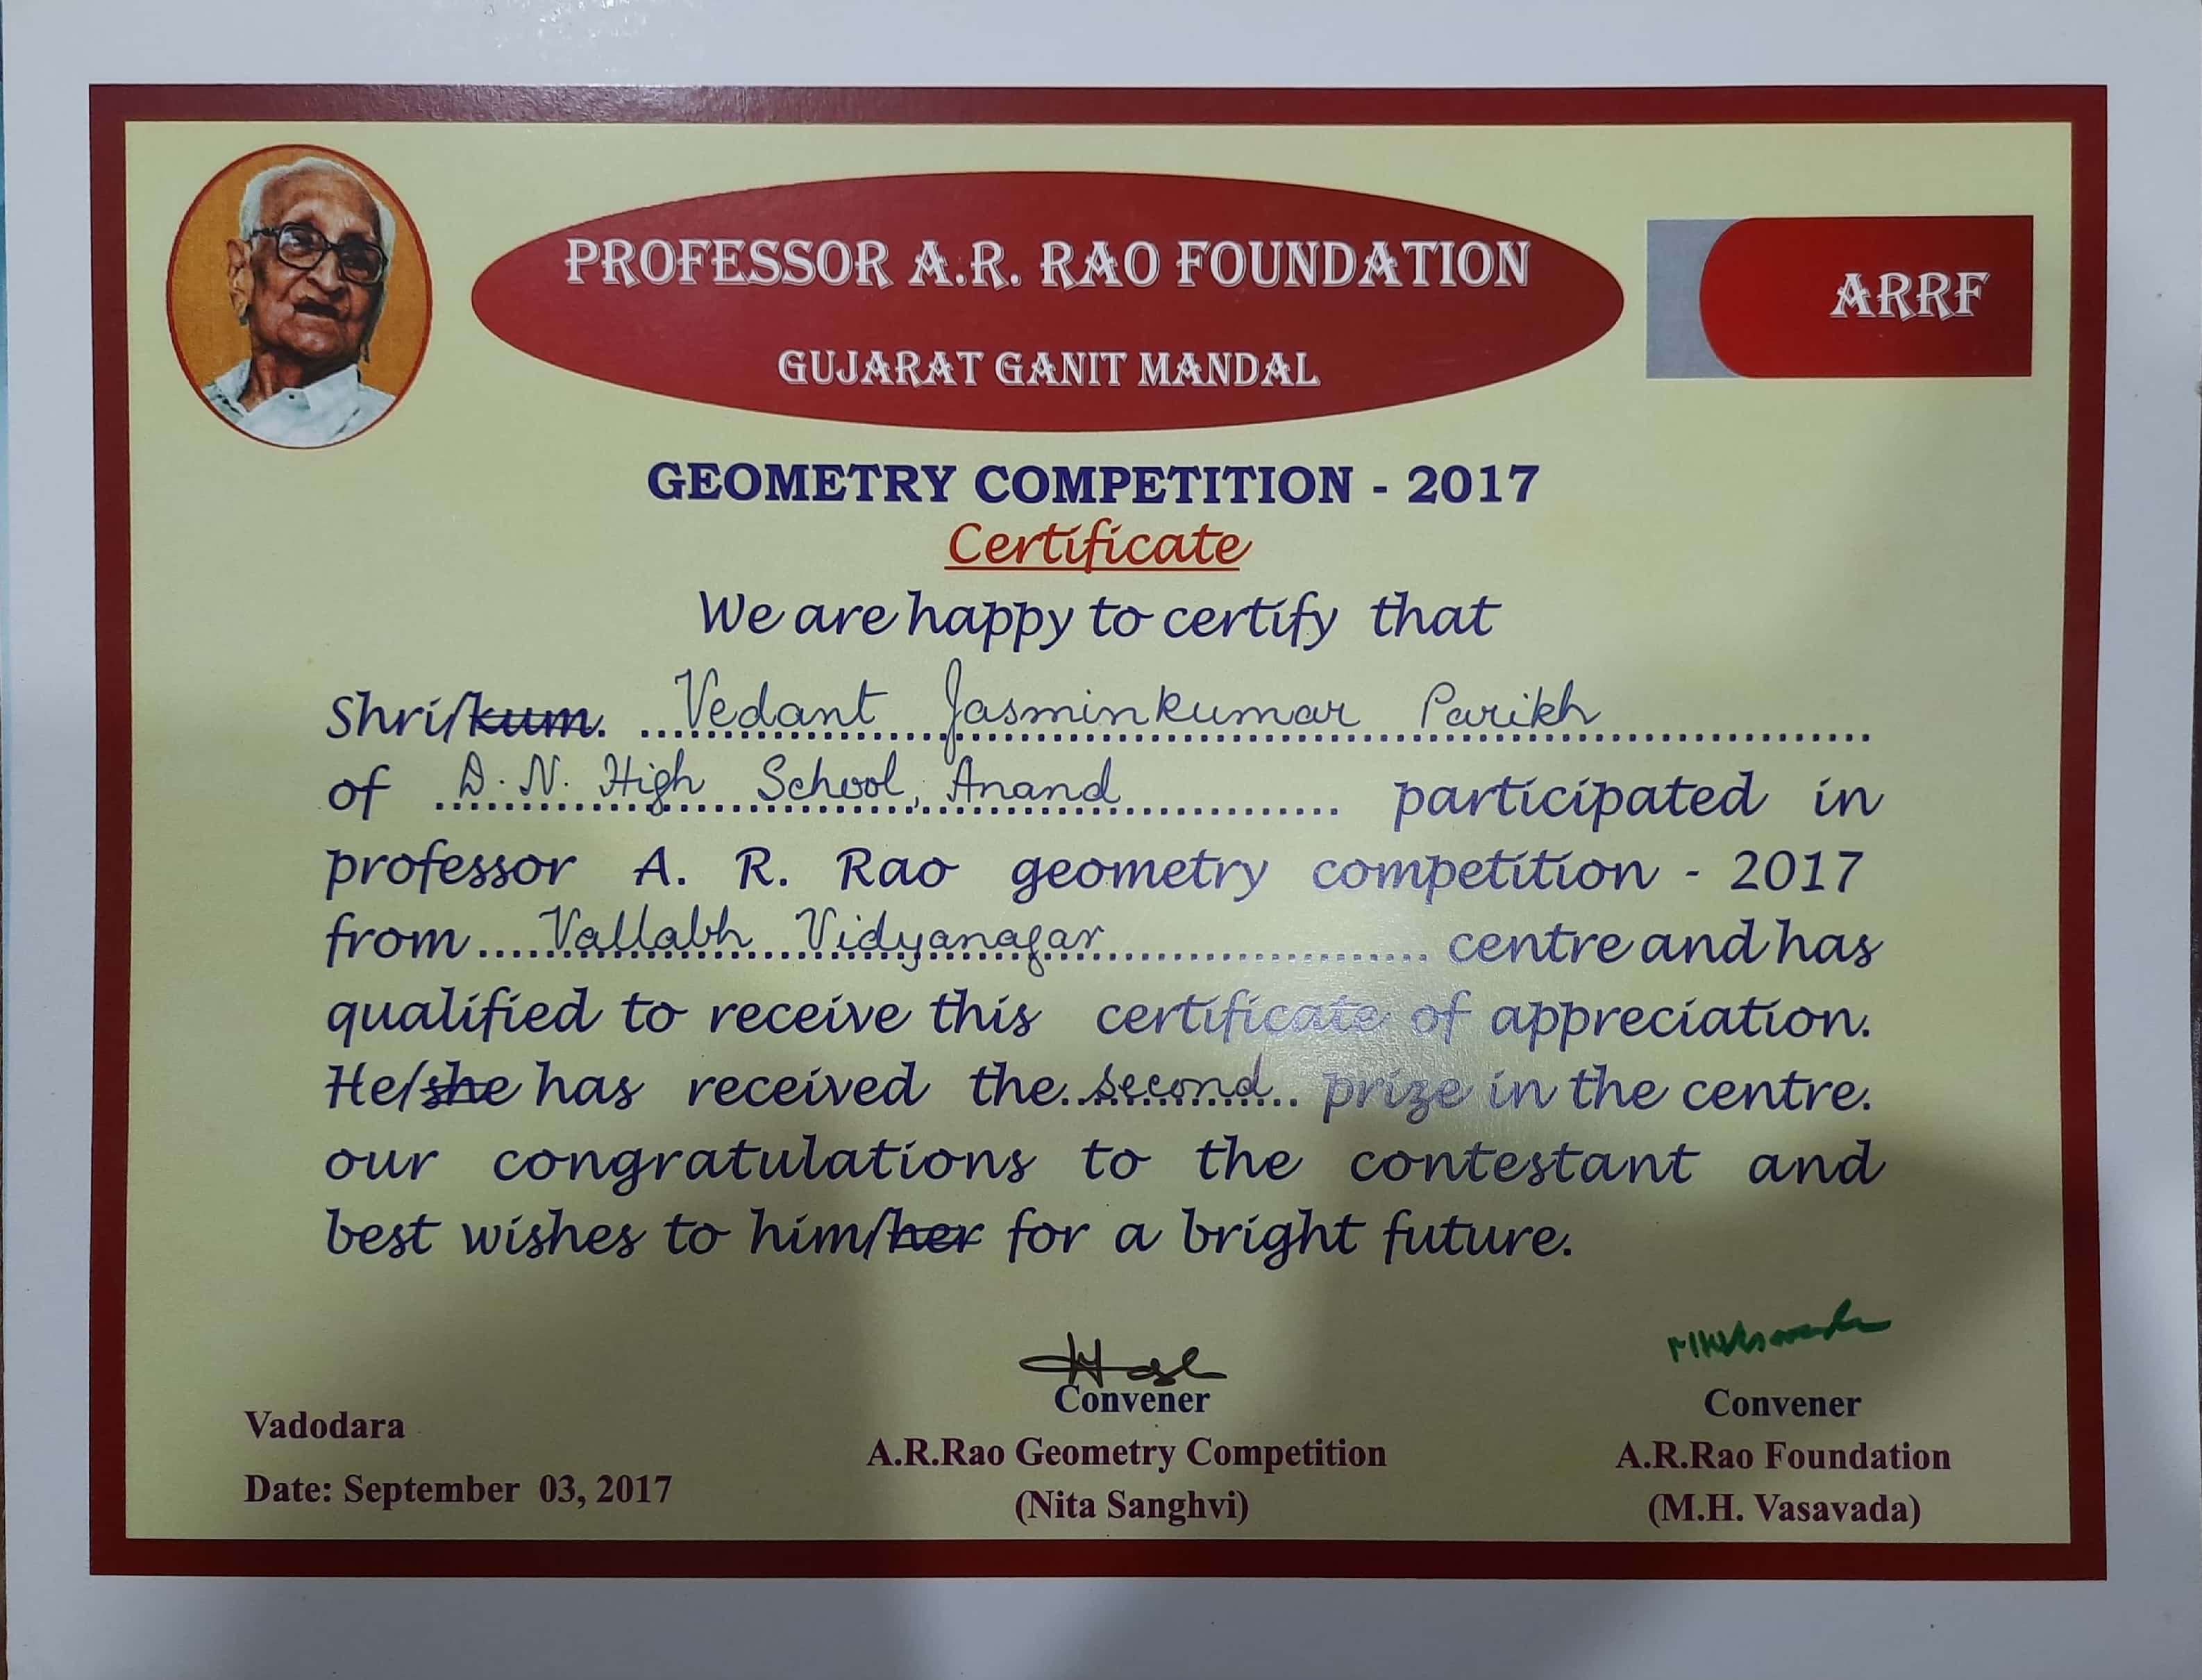 PROFESSOR A.R. RAO FOUNDATION
GUJARAT GANIT MANDAL
ARRF
GEOMETRY COMPETITION - 2017
Certificate
We are happy to certify that
Shri/kum. Vedant Jasminkumar Parikh
of D. N. High School, Anand participated in
professor A. R. Rao geometry competition - 2017
from Vallabh Vidyanagar centre and has
qualified to receive this certificate of appreciation.
He/she has received the second prize in the centre.
our congratulations to the contestant and
best wishes to him/her for a bright future.
Convener
A.R.Rao Geometry Competition
(Nita Sanghvi)
Convener
A.R.Rao Foundation
(M.H. Vasavada)
Vadodara
Date: September 03, 2017